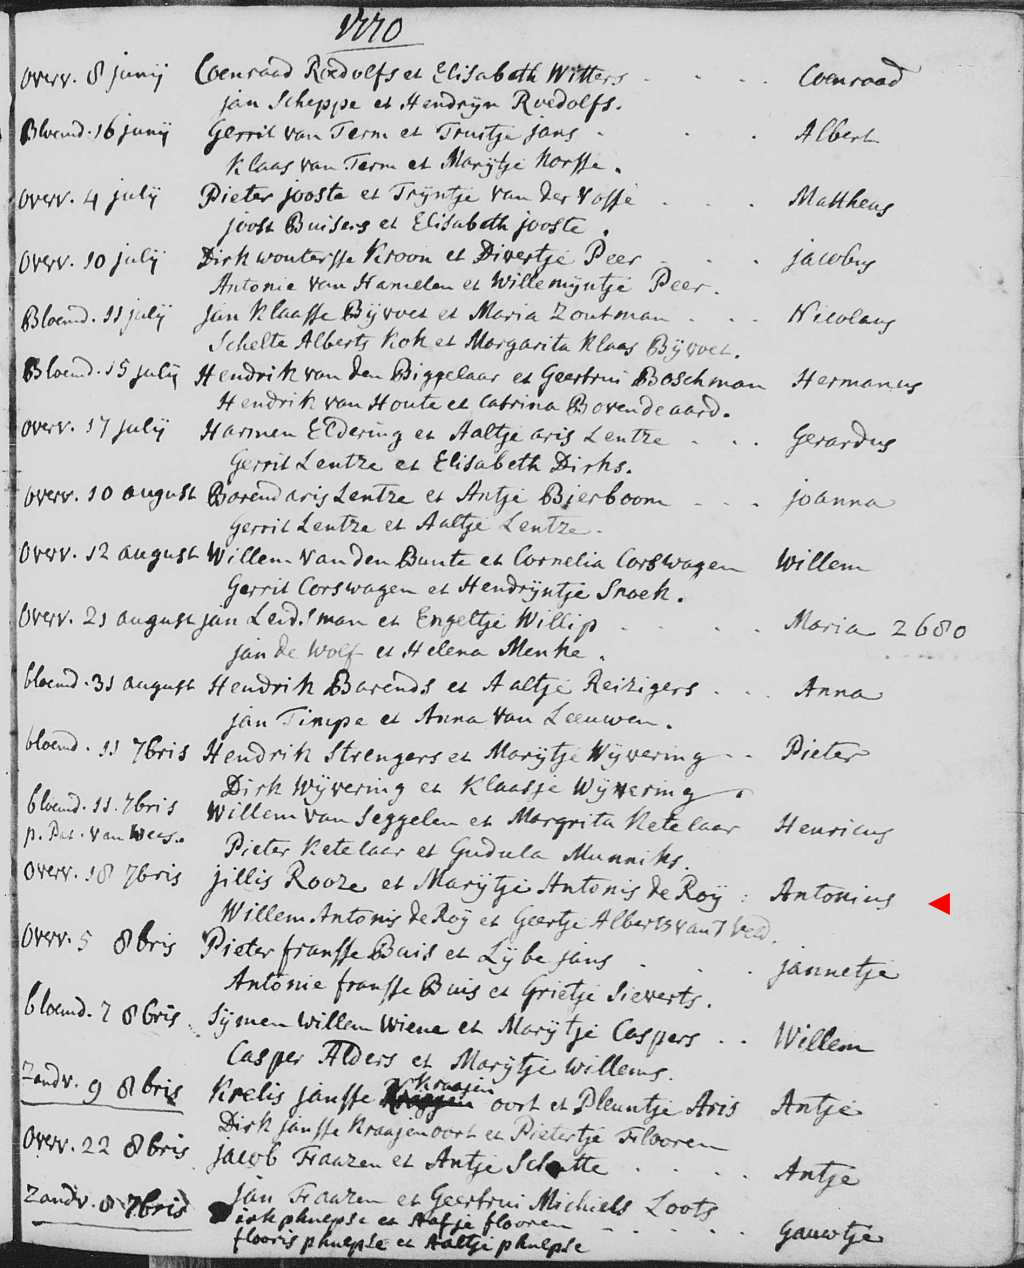 1770
overv. 8 junij Coenraad Roedolfs et Elisabeth Witters . . . . Coenraad
jan Scheppe et Hendrijn Roedolfs.
Bloemd. 16 junij Gerrit van Term et Truitje jans . . . Albert
Klaas van Term et Marijtje Korsse.
overv. 4 julij Pieter jooste et Trijntje van der Vosse . . . Mattheus
joost Buisers et Elisabeth jooste.
overv. 10 julij Dirk woutersse Kroon et Divertje Peer . . . jacobus
Antonie van Hamelen et Willemijntje Peer.
Bloemd. 11 julij jan Klaasse Bijvoet et Maria Zoutman . . . Nicolaus
Schelte Alberts Kok et Margarita Klaas Bijvoet.
Bloemd. 15 julij Hendrik van den Biggelaar et Geertrui Boschman Hermanus
Hendrik van Houte et Catrina Bovendeaard.
overv. 17 julij Harmen Eldering et Aaltje aris Lentze . . . Gerardus
Gerrit Lentze et Elisabeth Dirks.
overv. 10 august Barend aris Lentze et Antje Bierboom . . . joanna
Gerrit Lentze et Aaltje Lentze.
overv. 12 august Willem van den Bunte et Cornelia Corswagen Willem
Gerrit Corswagen et Hendrijntje Snoek.
overv. 21 august jan Leidsman et Engeltje Willip . . . . Maria 2680
jan de Wolf et Helena Menke.
bloemd. 31 august Hendrik Barends et Aaltje Reizigers . . . Anna
jan Timpe et Anna van Leeuwen.
bloemd. 11 7bris Hendrik Strengers et Marijtje Wijvering . . Pieter
Dirk Wijvering et Klaasje Wijvering.
bloemd. 11. 7bris Willem van Seggelen et Margrita Ketelaar Henricus
p. Pat. van Wees. Pieter Ketelaar et Gudula Munniks.
overv. 18 7bris jillis Rooze et Marijtje Antonis de Roij : Antonius
Willem Antonis de Roij et Geertje Alberts van 't Veld.
overv. 5 8bris Pieter fransse Buis et Lijbe jans . . . jannetje
Antonie fransse Buis et Grietje Sieverts.
bloemd. 7 8bris Sijmen Willem Wiene et Marijtje Caspers . . Willem
Casper Alders et Marijtje Willems.
Zandv. 9 8bris Krelis jansse Kraajen oort et Pleuntje Aris Antje
Dirk jansse Kraajenoort et Pietertje Flooren
overv. 22 8bris jacob Traazen et Antje Schatte . . . . Antje
jan Traazen et Geertrui Michiels Loots
Zandv. 8 7bris Dirk phlepse et Aafje flooren . . . . Gauwtje
flooris phlepse et Aaltje phlepse